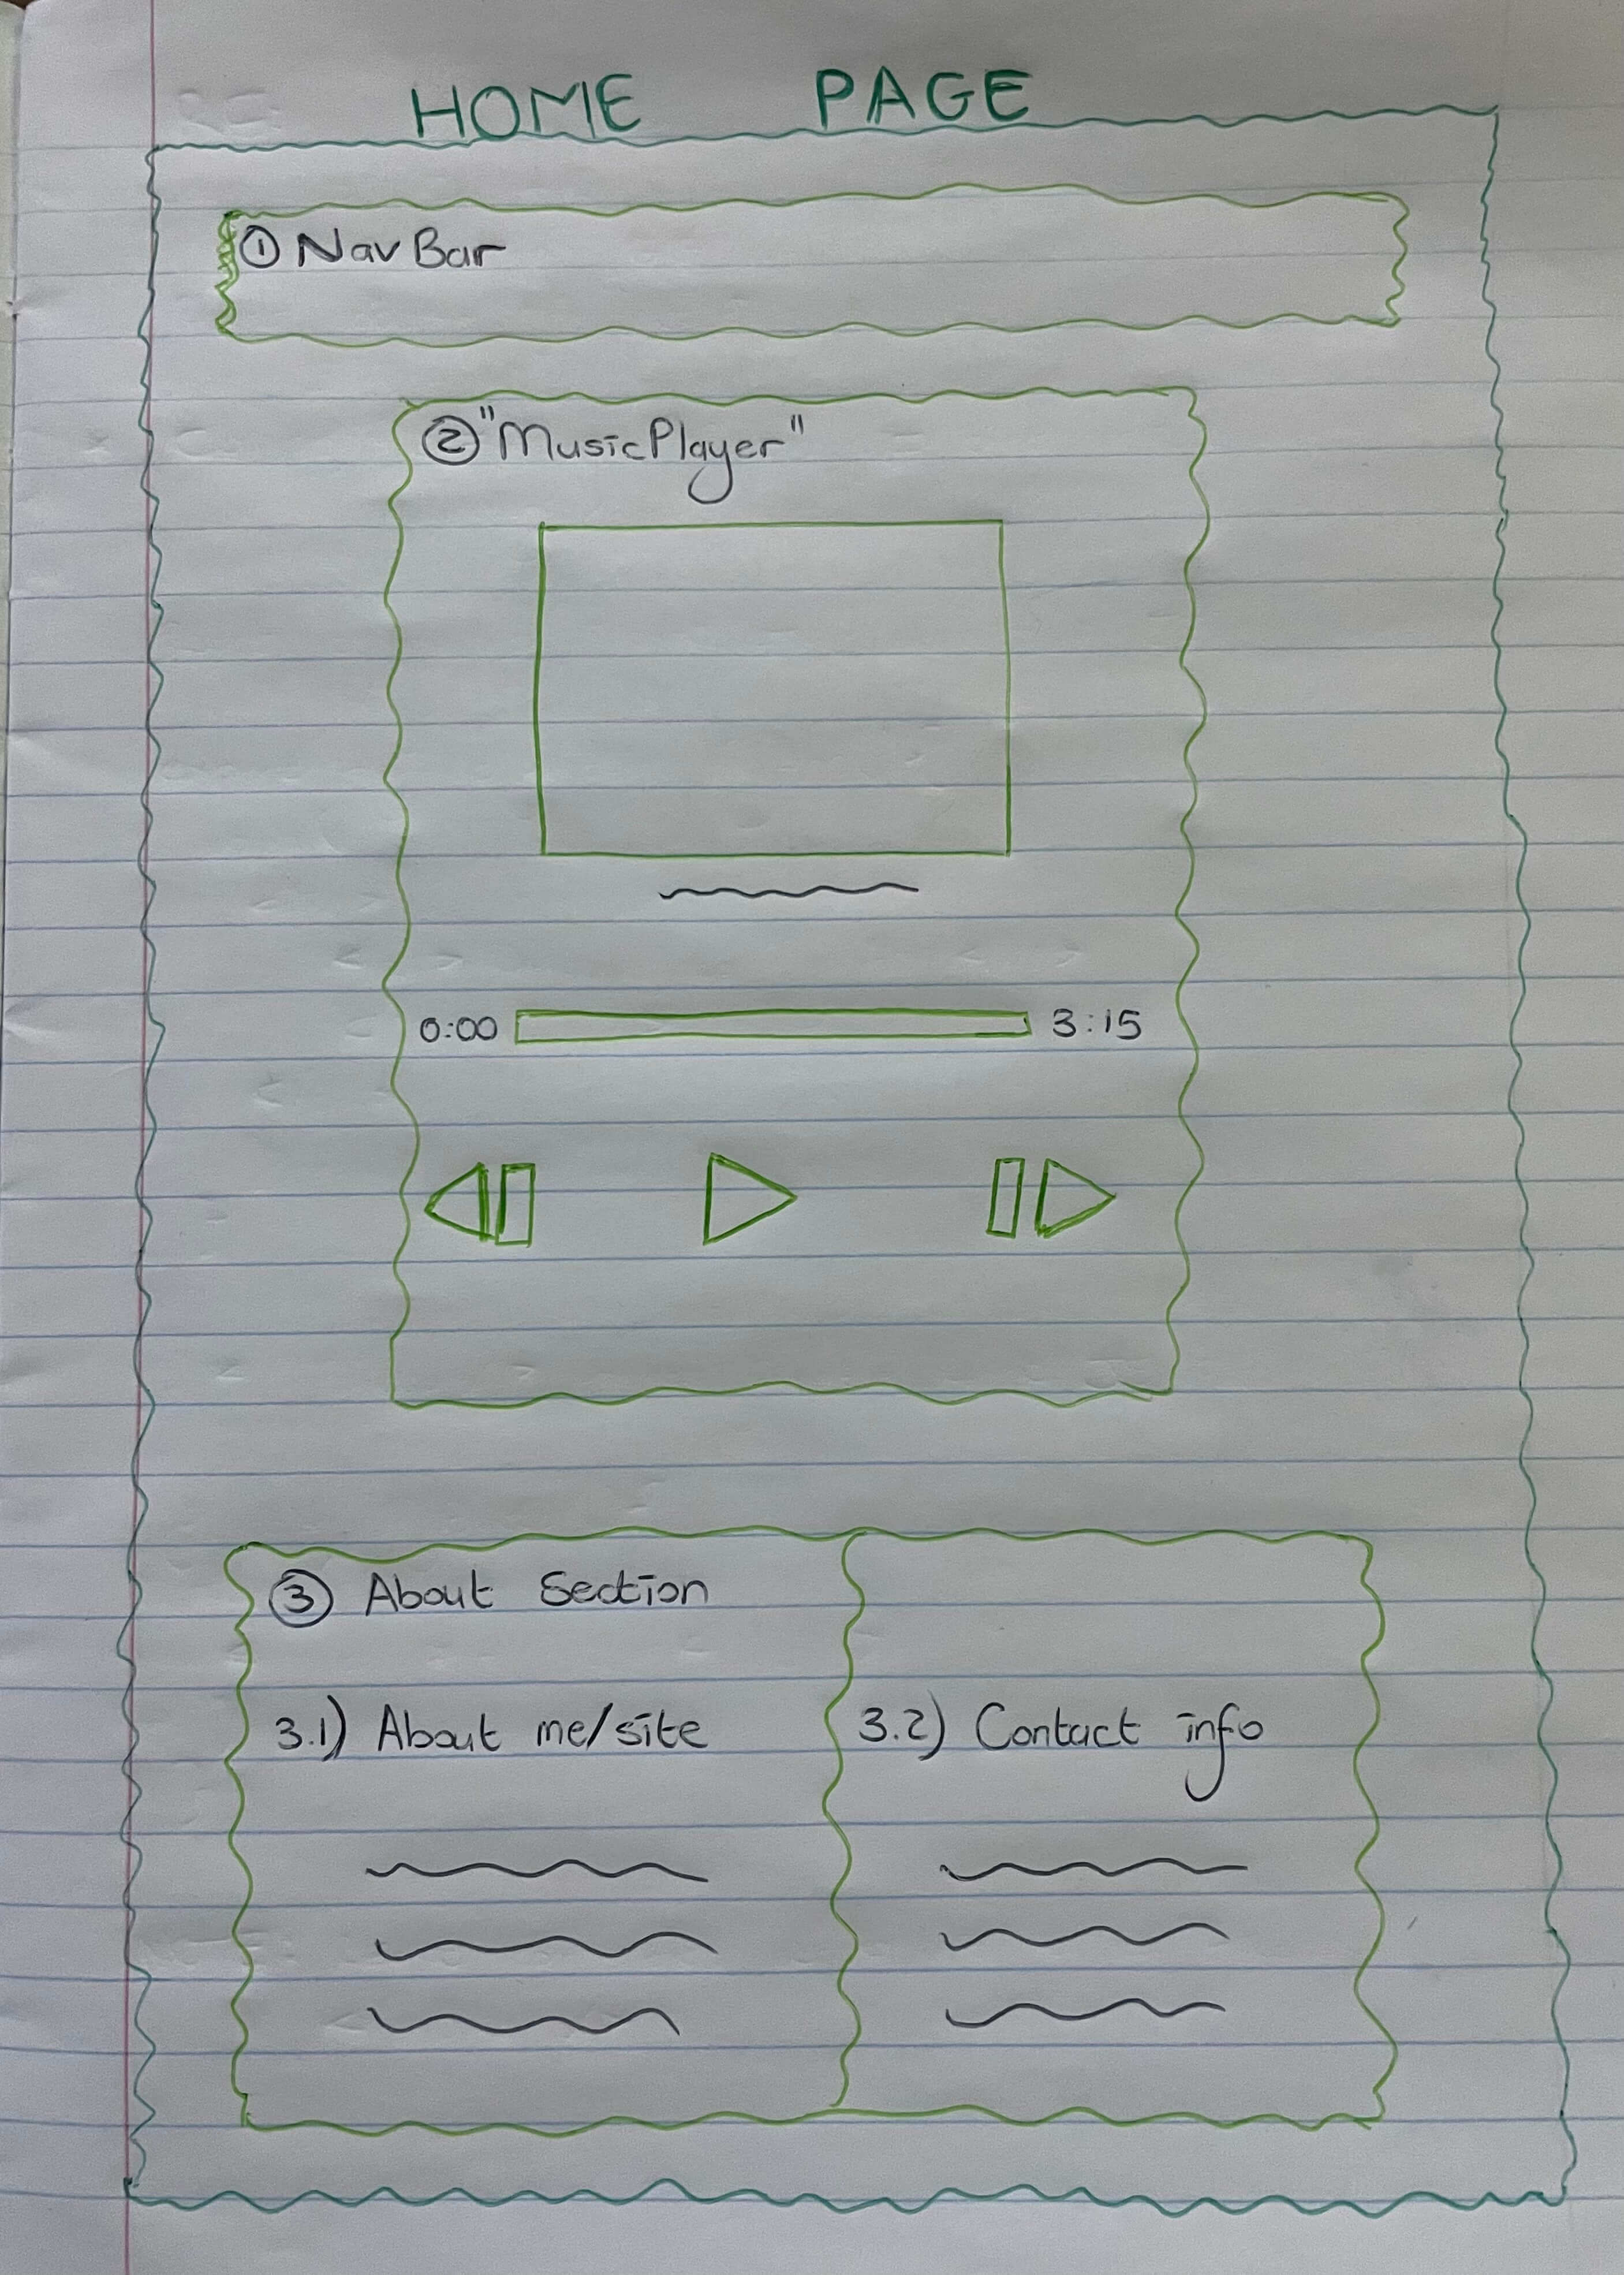 HOME PAGE
① NavBar
② "MusicPlayer"
0:00 3:15
③ About Section
3.1) About me/site
3.2) Contact info